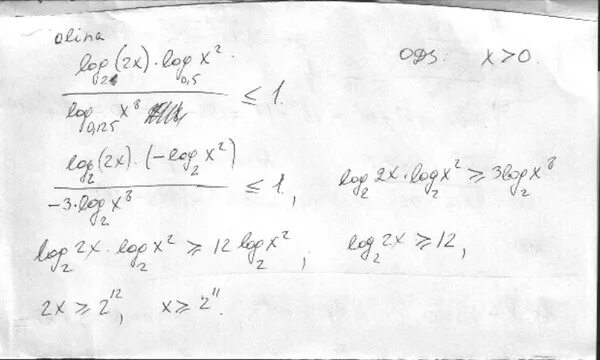 olina
log₂(2x)·log₀,₅ x² / log₀,₁₂₅ x⁸ ≤ 1.
ОДЗ: x>0.
log₂(2x)·(-log₂ x²) / -3·log₂ x⁸ ≤ 1,
log₂ 2x·log₂ x² ≥ 3log₂ x⁸
log₂ 2x·log₂ x² ≥ 12 log₂ x²;
log₂ 2x ≥ 12,
2x ≥ 2¹², x ≥ 2¹¹.